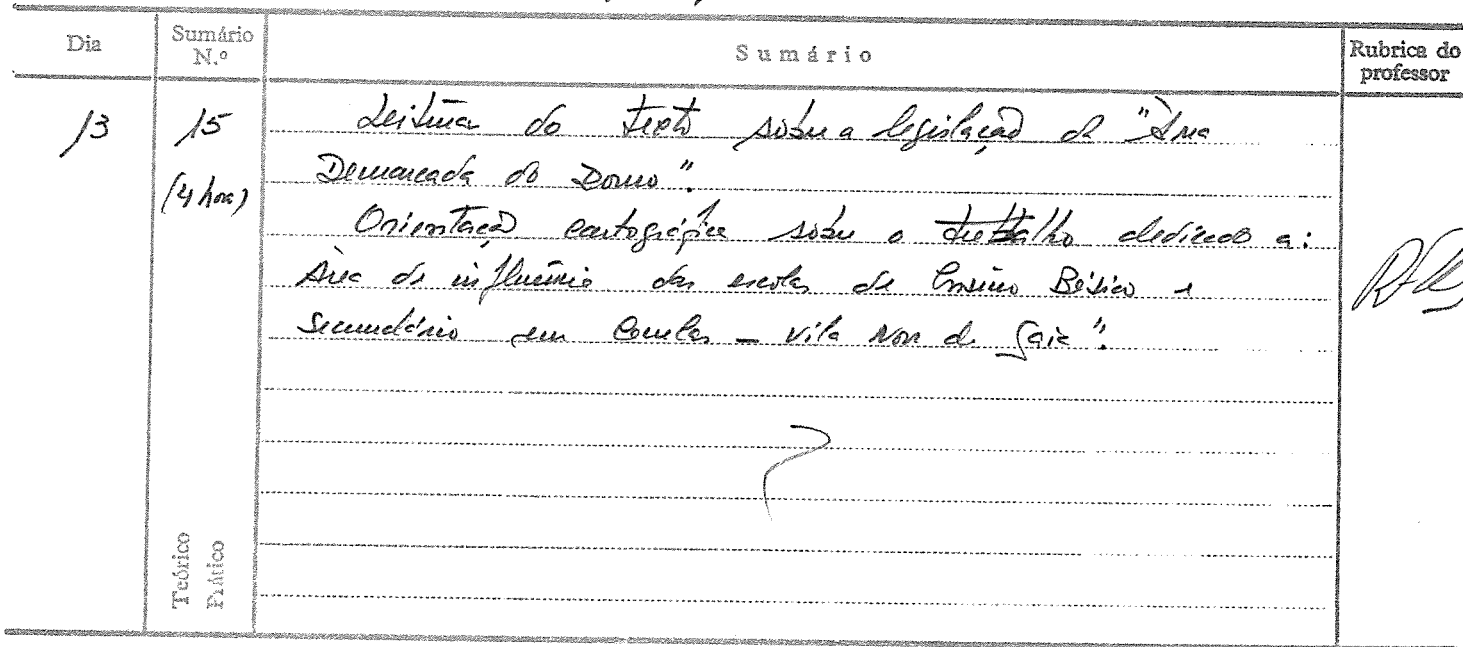 Dia
Sumário N.º
Sumário
Rubrica do professor
13
15
(4 horas)
Leitura do texto sobre a legislação da "Área
Demarcada do Douro".
Orientação cartográfica sobre o trabalho dedicado a:
Área de influência das escolas de Ensino Básico e
Secundário em Canelas – Vila Nova de Gaia".
Teórico
Prático